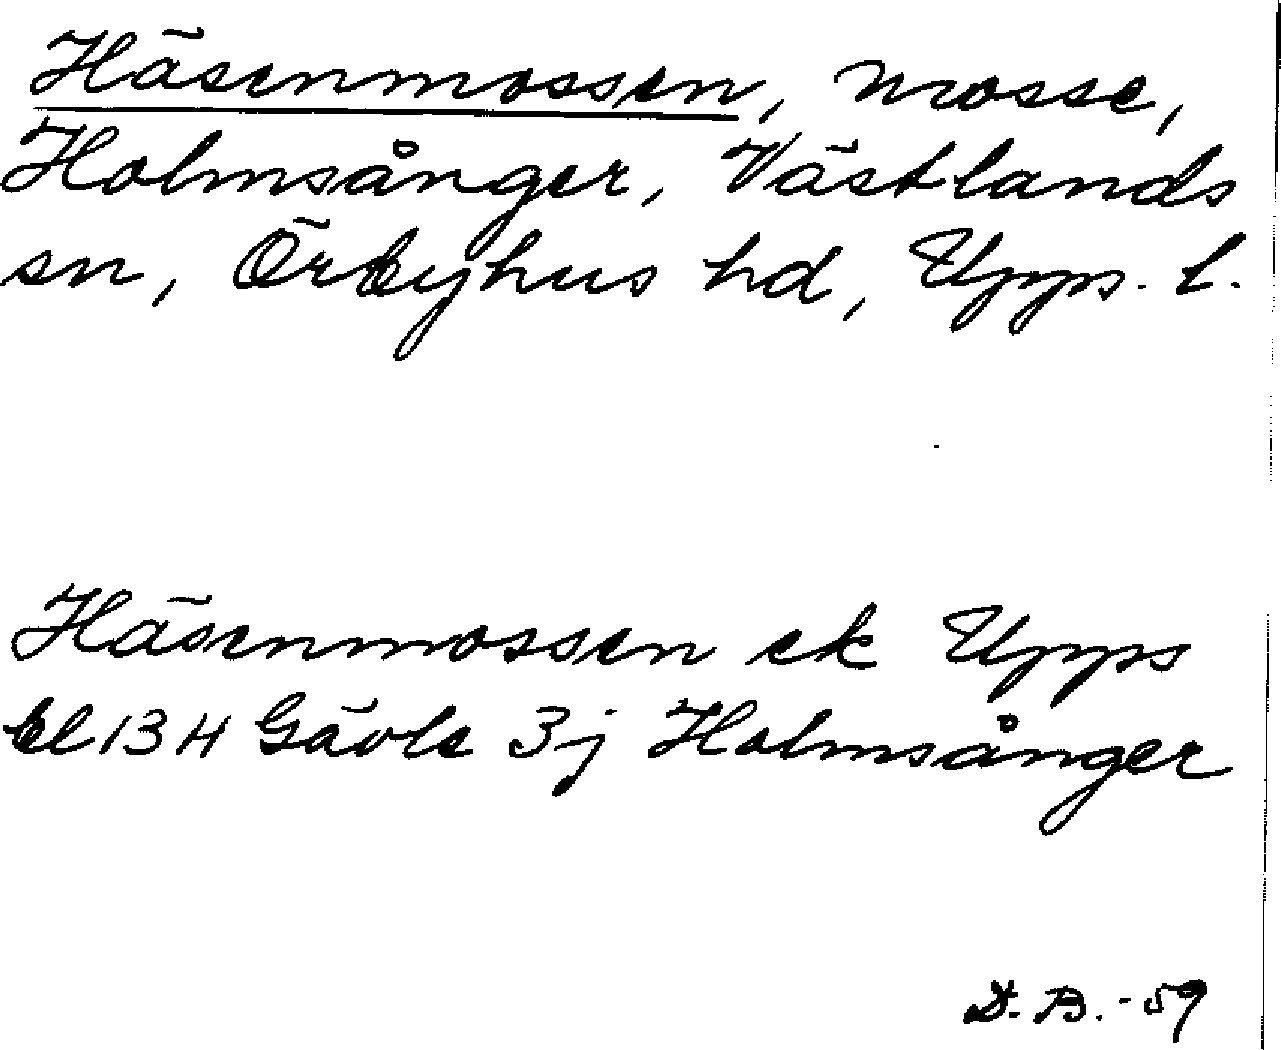 Häsenmossen, mosse,
Holmsånger, Västlands
sn, Örbyhus hd, Upps. l.
Häsenmossen ek Upps
bl 13 H Gävle 3j Holmsånger
D. B. -59